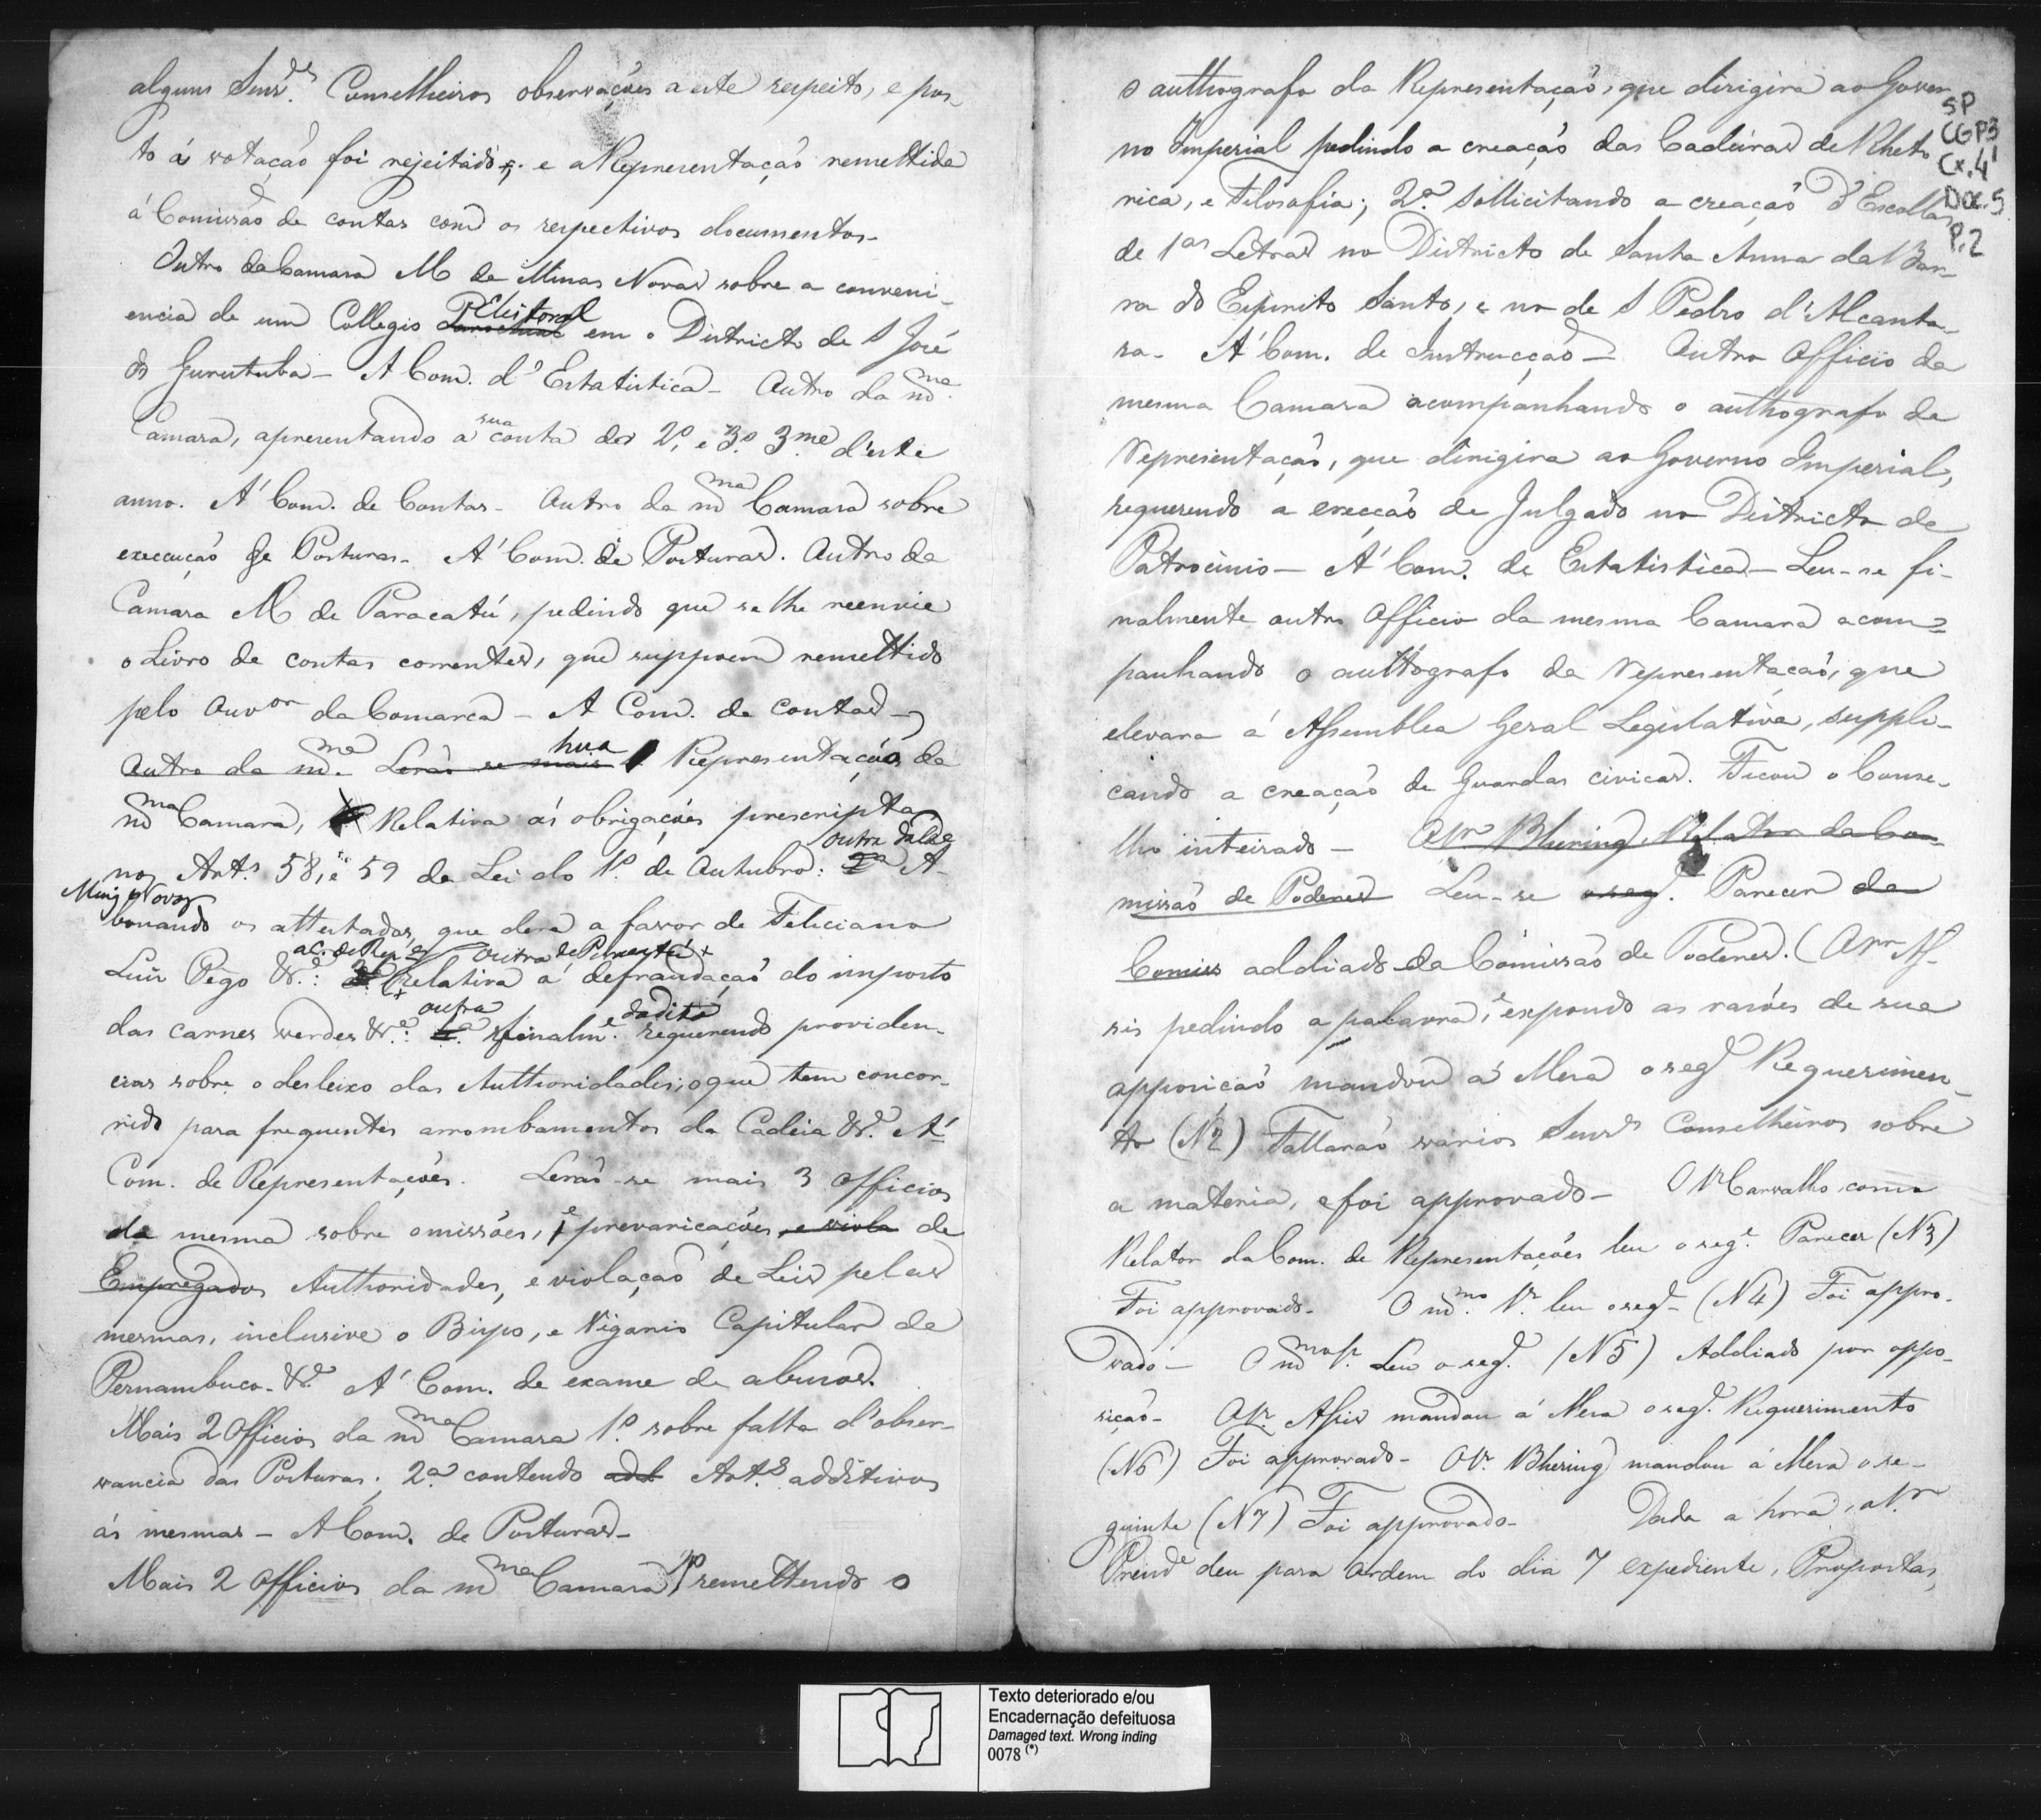 alguns Snrs. Conselheiros observações a este respeito, e pos-
to á votação foi rejeitado, e a Representação remettida
á Comissão de contas com os respectivos documentos-
Outro da Camara M de Minas Novas sobre a conveni-
encia de um Collegio Parochial Eleitoral em o Districto de S José
do Gurutuba - A Com. d'Estatistica - Outro da mma
Camara, apresentando a sua conta do 2º, e 3º 3me d'este
anno. A' Com. de Contas - Outro da mma Camara sobre
execução de Posturas - A' Com. de Posturas. Outro da
Camara M de Paracatú, pedindo que se lhe reenvie
o Livro de contas correntes, que suppoem remettido
pelo Ouvor da Comarca - A Com. de contas -
Outro da mma. Lerão se mais hua Representação da
mma Camara, Relativa ás obrigações prescriptas
nos Arts. 58, e 59 da Lei do 1º de Outubro: 2ª outra da de A-
Minas Novas
bonando os attestados, que dera a favor de Feliciano
Luis Pego &ª: relativa á defraudação do imposto
das carnes verdes &ª: outra finalme. da dita requerendo providen-
cias sobre o desleixo das Authoridades; o que tem concor-
rido para frequentes arrombamentos da Cadêia &ª. A'
Com. de Representações. Lerão-se mais 3 officios
da mesma sobre omissões, e prevaricações, e viola de
Empregados Authoridades, e violação de Leis pelas
mesmas, inclusive o Bispo, e Vigario Capitular de
Pernambuco - &ª A' Com. de exame de abusos.
Mais 2 Officios da mma Camara 1º sobre falta d'obser-
vancia das Posturas; 2º contendo add Arts. additivos
ás mesmas - A Com. de Posturas-
Mais 2 officios da mma Camara 1º remettendo o
o authografo da Representação, que dirigira ao Gover-
no Imperial pedindo a creação das Cadeiras de Rheto-
rica, e Filosofia; 2º. sollicitando a creação d'Escollas
de 1as Letras no Districto de Santa Anna da Bar-
ra do Espirito Santo, e no de S Pedro d'Alcanta-
ra - A' Com. de Instrucção - Outro Officio da
mesma Camara acompanhando o authografo da
Representação, que dirigira ao Governo Imperial,
requerendo a erecção de Julgado no Districto de
Patrocinio - A' Com. de Estatistica - Leu-se fi-
nalmente outro Officio da mesma Camara acom-
panhando o authografo da Representação, que
elevara á Assemblea Geral Legislativa, suppli-
cando a creação de Guardas civicas. Ficou o Conse-
lho inteirado - O Sr Bhering, Relator da Co-
missão de Poderes Leu-se o seg. Parecer da
Comiss addiado da Comissão de Poderes. (O Sr As-
sis pedindo a palavra, e expondo as rasões de sua
opposição mandou á Mesa o sege Requerimen-
to (N2) Fallarão varios Senrs Conselheiros sobre
a materia, e foi approvado - O Sr Carvalho como
Relator da Com. de Representações leu o sege. Parecer (N3)
Foi approvado - O mmo. Sr. leu o sege (N4) Foi appro-
vado - O mmo Sr. Leu o sege. (N5) Addiado por oppo-
sição - O Sr. Assis mandou á Mesa o sege. Requerimento
(N6) Foi approvado - O Sr. Bhering mandou á Mesa o se-
guinte (N7) Foi approvado - Dada a hora, o Sr
Preside deu para ordem do dia 7 expediente, Propostas,
SP
CGP3
Cx.4
DOC.5
P.2
Texto deteriorado e/ou
Encadernação defeituosa
Damaged text. Wrong inding
0078 (*)